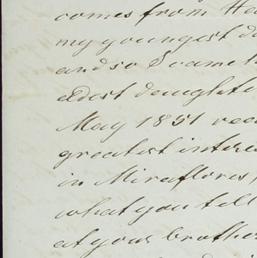 comes from Ha
my youngest da
and so I came t
eldest daughte
May 1851 rece
greatest intere
in Miraflores,
what you tell
at your brother